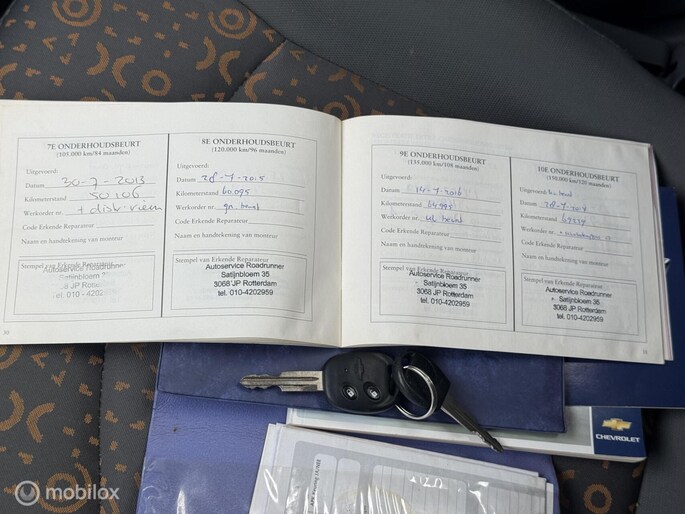 7E ONDERHOUDSBEURT
(105.000 km/84 maanden)
Uitgevoerd:
Datum 30-7-2013
Kilometerstand 50106
Werkorder nr. + distr-riem
Code Erkende Reparateur
Naam en handtekening van monteur
Stempel van Erkende Reparateur
Autoservice Roadrunner
Satijnbloem
JP
tel. 010-4202
8E ONDERHOUDSBEURT
(120.000 km/96 maanden)
Uitgevoerd:
Datum 28-7-2015
Kilometerstand 60.095
Werkorder nr.
Code Erkende Reparateur
Naam en handtekening van monteur
Stempel van Erkende Reparateur
Autoservice Roadrunner
Satijnbloem 35
3068 JP Rotterdam
tel. 010-4202959
9E ONDERHOUDSBEURT
(135.000 km/108 maanden)
Uitgevoerd:
Datum 14-7-2016
Kilometerstand
Werkorder nr.
Code Erkende Reparateur
Naam en handtekening van monteur
Stempel van Erkende Reparateur
Autoservice Roadrunner
Satijnbloem 35
3068 JP Rotterdam
tel. 010-4202959
10E ONDERHOUDSBEURT
(150.000 km/120 maanden)
Uitgevoerd:
Datum
Kilometerstand
Werkorder nr.
Code Erkende Reparateur
Naam en handtekening van monteur
Stempel van Erkende Reparateur
Autoservice Roadrunner
Satijnbloem 35
3068 JP Rotterdam
tel. 010-4202959
CHEVROLET
mobilox